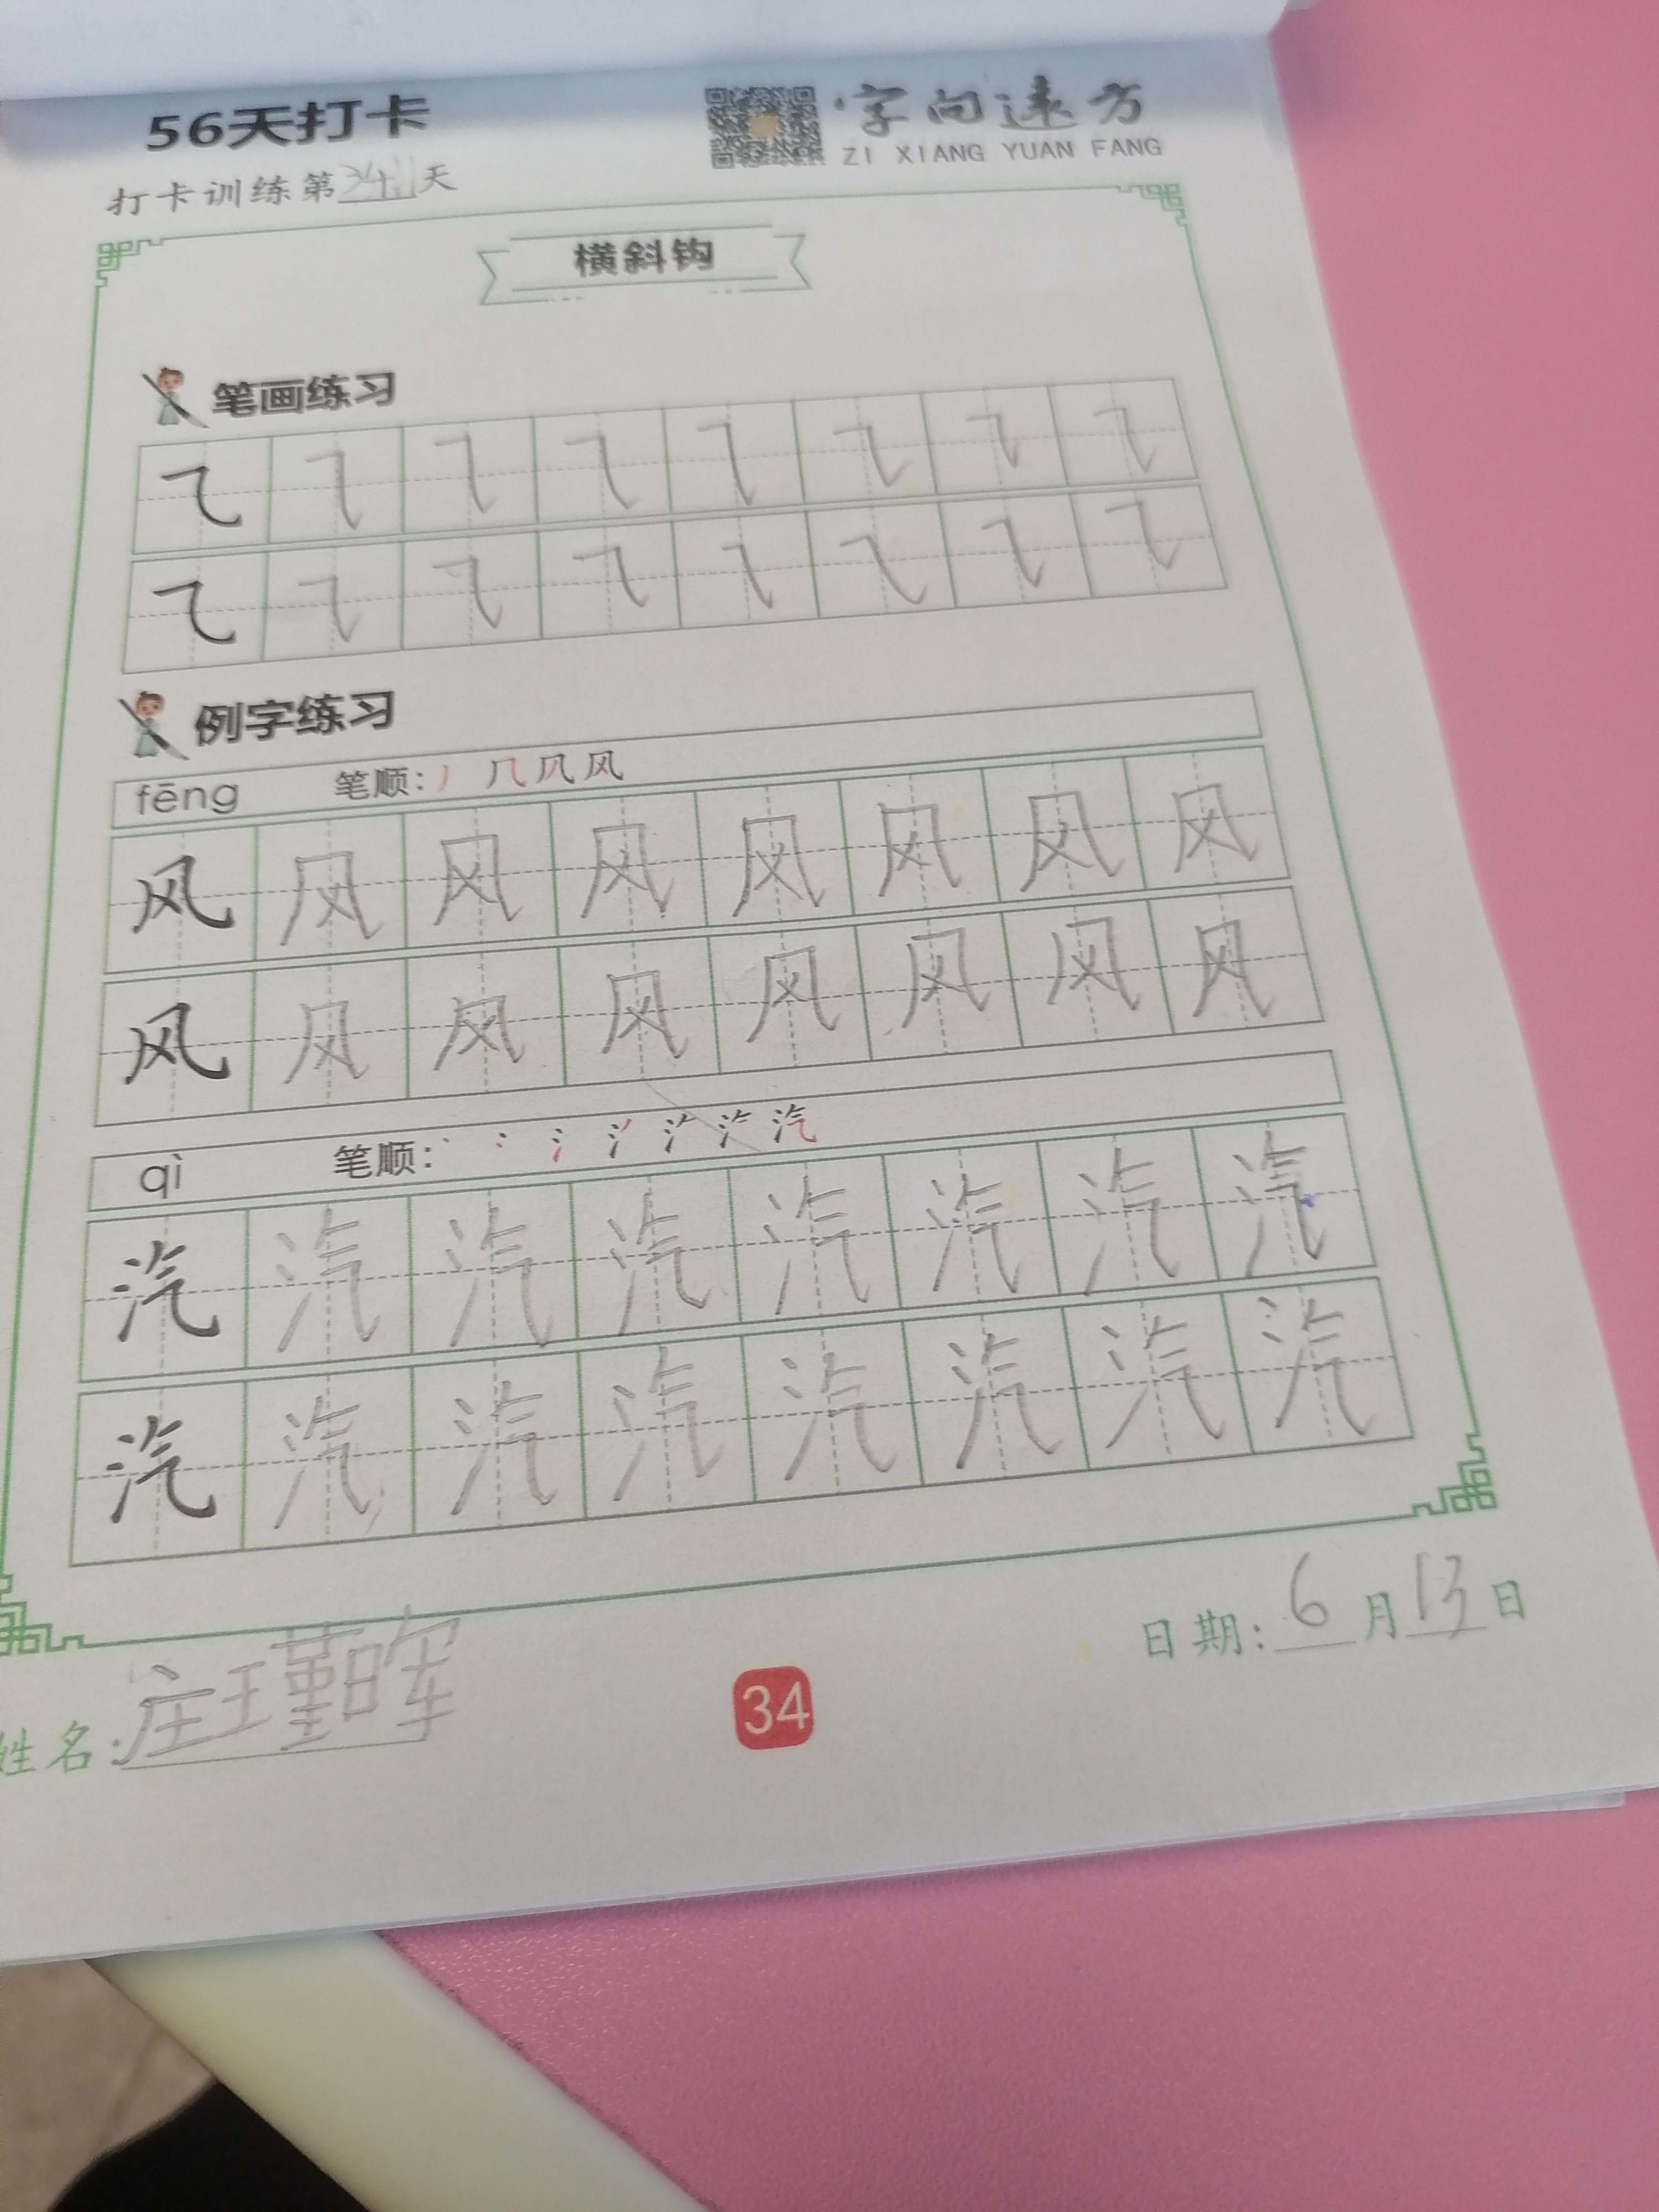 56天打卡
字向远方
ZI XIANG YUAN FANG
打卡训练第34天
横斜钩
笔画练习
㇈ ㇈ ㇈ ㇈ ㇈ ㇈ ㇈ ㇈
㇈ ㇈ ㇈ ㇈ ㇈ ㇈ ㇈ ㇈
例字练习
fēng 笔顺: 风
风 风 风 风 风 风 风 风
风 风 风 风 风 风 风 风
qì 笔顺: 汽
汽 汽 汽 汽 汽 汽 汽 汽
汽 汽 汽 汽 汽 汽 汽 汽
姓名: 庄瑾晖
日期: 6月13日
34